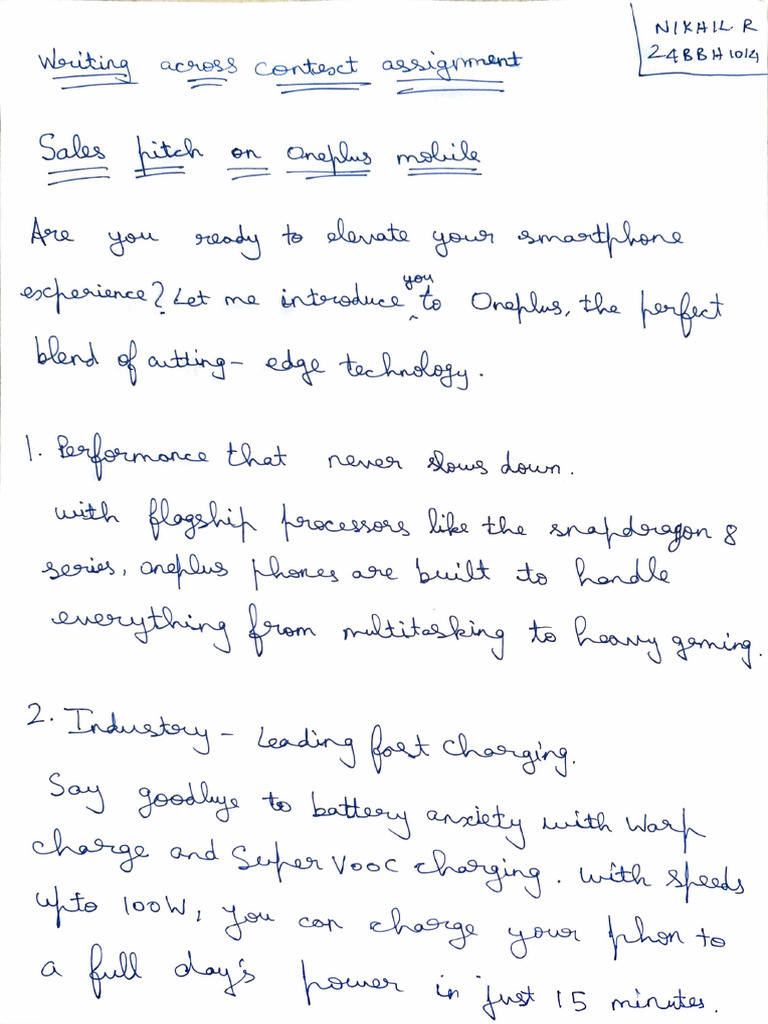 NIKHIL R
24BBH1014
Writing across context assignment
Sales pitch on Oneplus mobile
Are you ready to elevate your smartphone
experience? Let me introduce you to Oneplus, the perfect
blend of cutting-edge technology.
1. Performance that never slows down.
with flagship processors like the snapdragon 8
series, oneplus phones are built to handle
everything from multitasking to heavy gaming.
2. Industry-Leading fast charging.
Say goodbye to battery anxiety with Warp
charge and Super VOOC charging. with speeds
upto 100W, you can charge your phon to
a full day's power in just 15 minutes.